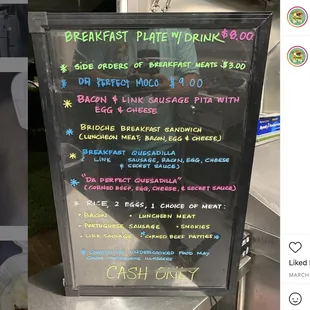 BREAKFAST PLATE W/ DRINK $8.00
* SIDE ORDERS OF BREAKFAST MEATS $3.00
* DA PERFECT MOCO $9.00
* BACON & LINK SAUSAGE PITA WITH
EGG & CHEESE
* BRIOCHE BREAKFAST SANDWICH
(LUNCHEON MEAT, BACON, EGG & CHEESE)
* BREAKFAST QUESADILLA
LINK SAUSAGE, BACON, EGG, CHEESE
& SECRET SAUCE)
* "DA PERFECT QUESADILLA"
(CORNED BEEF, EGG, CHEESE, & SECRET SAUCE)
* RICE, 2 EGGS, 1 CHOICE OF MEAT:
• BACON • LUNCHEON MEAT
• PORTUGUESE SAUSAGE • SMOKIES
• LINK SAUSAGE • CORNED BEEF PATTIES
UNDERCOOKED FOOD MAY
CASH ONLY
Liked
MARCH